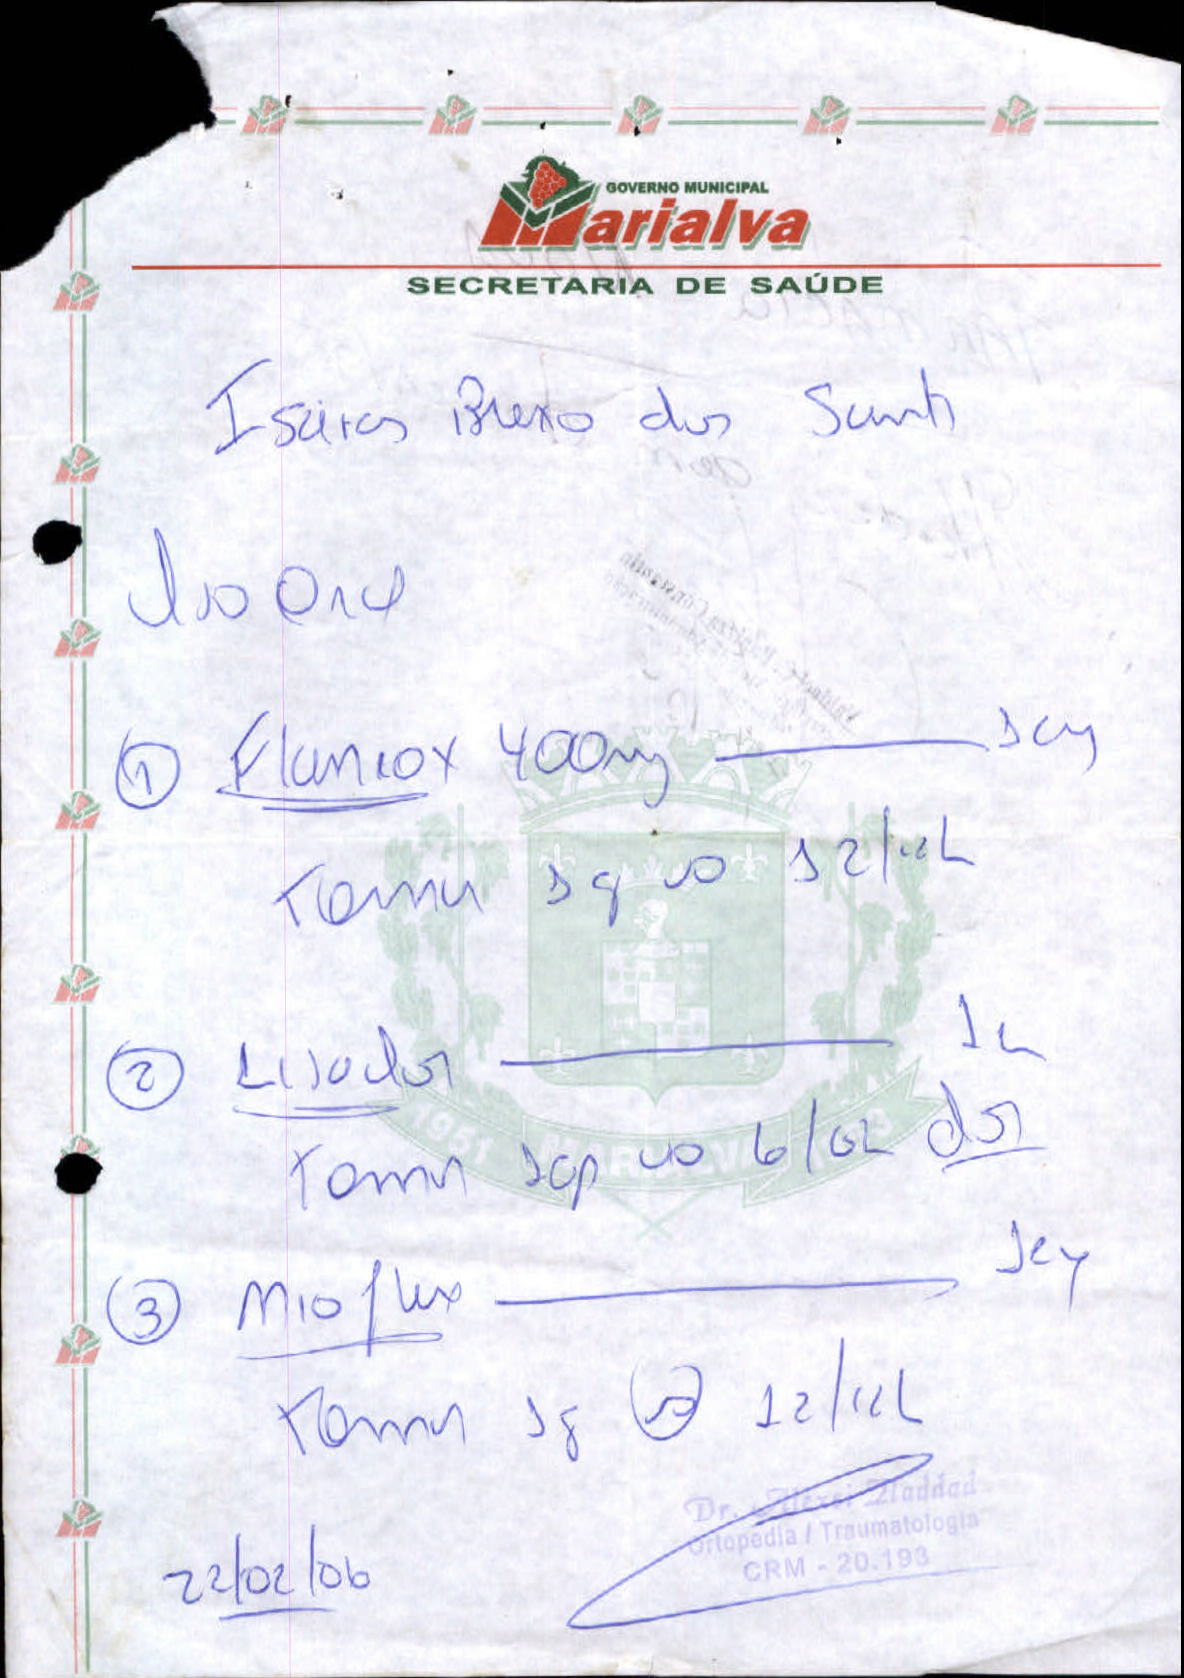 GOVERNO MUNICIPAL
Marialva
SECRETARIA DE SAÚDE
Isaias dos
Uso Oral
1 Flancox 400mg 1cx
Tomar 1 cp vo 12/12h
2 Lisador 1cx
Tomar 1cp vo 6/6h dor
1951 MARIALVA
3 Mioflex 1cx
Tomar 1cp vo 12/12h
Dr. Alexei Haddad
Ortopedia / Traumatologia
CRM - 20.193
22/02/06